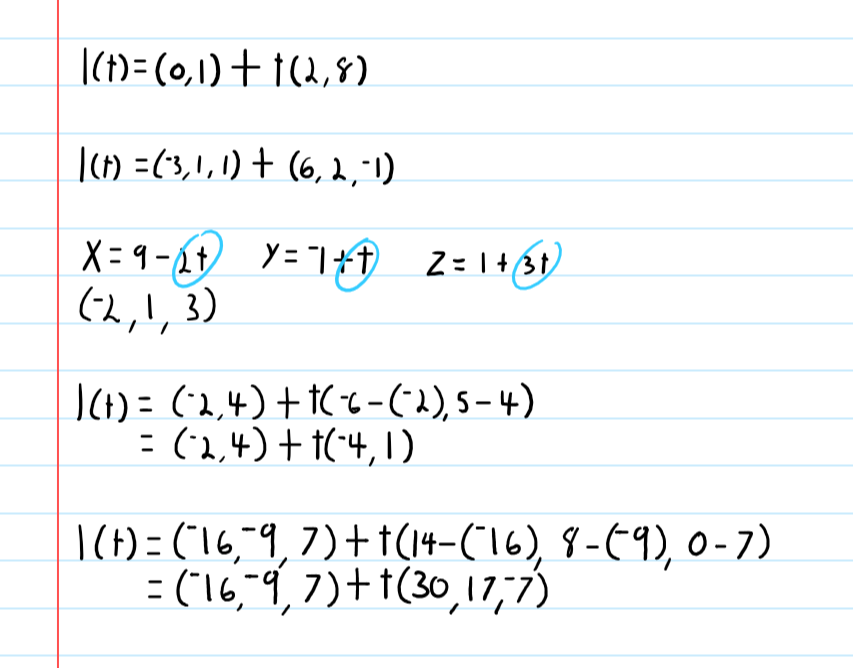 l(t)=(0,1)+t(2,8)
l(t)=(⁻3,1,1)+(6,2,⁻1)
x=9-2t y=⁻1+t z=1+3t
(⁻2,1,3)
l(t)=(⁻2,4)+t(⁻6-(⁻2),5-4)
=(⁻2,4)+t(⁻4,1)
l(t)=(⁻16,⁻9,7)+t(14-(⁻16),8-(⁻9),0-7)
=(⁻16,⁻9,7)+t(30,17,⁻7)